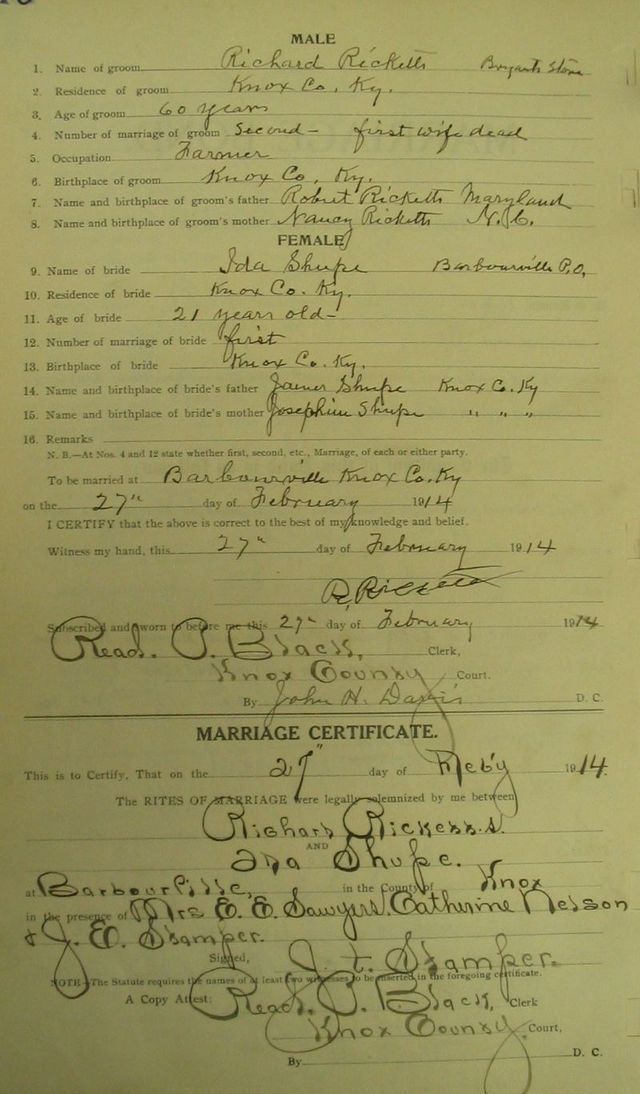 MALE
1. Name of groom Richard Ricketts Bryants Store
2. Residence of groom Knox Co. Ky.
3. Age of groom 60 years
4. Number of marriage of groom Second - first wife dead
5. Occupation Farmer
6. Birthplace of groom Knox Co, Ky.
7. Name and birthplace of groom's father Robert Ricketts Maryland
8. Name and birthplace of groom's mother Nancy Ricketts N.C.
FEMALE
9. Name of bride Ida Shupe Barbourville P.O.
10. Residence of bride Knox Co. Ky.
11. Age of bride 21 years old -
12. Number of marriage of bride first
13. Birthplace of bride Knox Co. Ky.
14. Name and birthplace of bride's father James Shupe Knox Co. Ky
15. Name and birthplace of bride's mother Josephine Shupe " " "
16. Remarks
N. B.—At Nos. 4 and 12 state whether first, second, etc., Marriage, of each or either party.
To be married at Barbourville Knox Co. Ky
on the 27" day of February 1914
I CERTIFY that the above is correct to the best of my knowledge and belief.
Witness my hand, this 27" day of February 1914
R. Ricketts
Subscribed and sworn to before me this 27" day of February 1914
Read. P. Black, Clerk,
Knox County Court.
By John H. Davis D. C.
MARRIAGE CERTIFICATE.
This is to Certify, That on the 27" day of Feby 1914.
The RITES OF MARRIAGE were legally solemnized by me between
Richard Ricketts.
AND
Ida Shupe.
at Barbourville, in the County of Knox
in the presence of Mrs E. E. Sawyers. Catherine Nelson
& J. E. Stamper.
Signed, J. t. Stamper.
NOTE—The Statute requires the names of at least two witnesses to be inserted in the foregoing certificate.
A Copy Attest: Read. P. Black, Clerk
Knox County. Court,
By D. C.